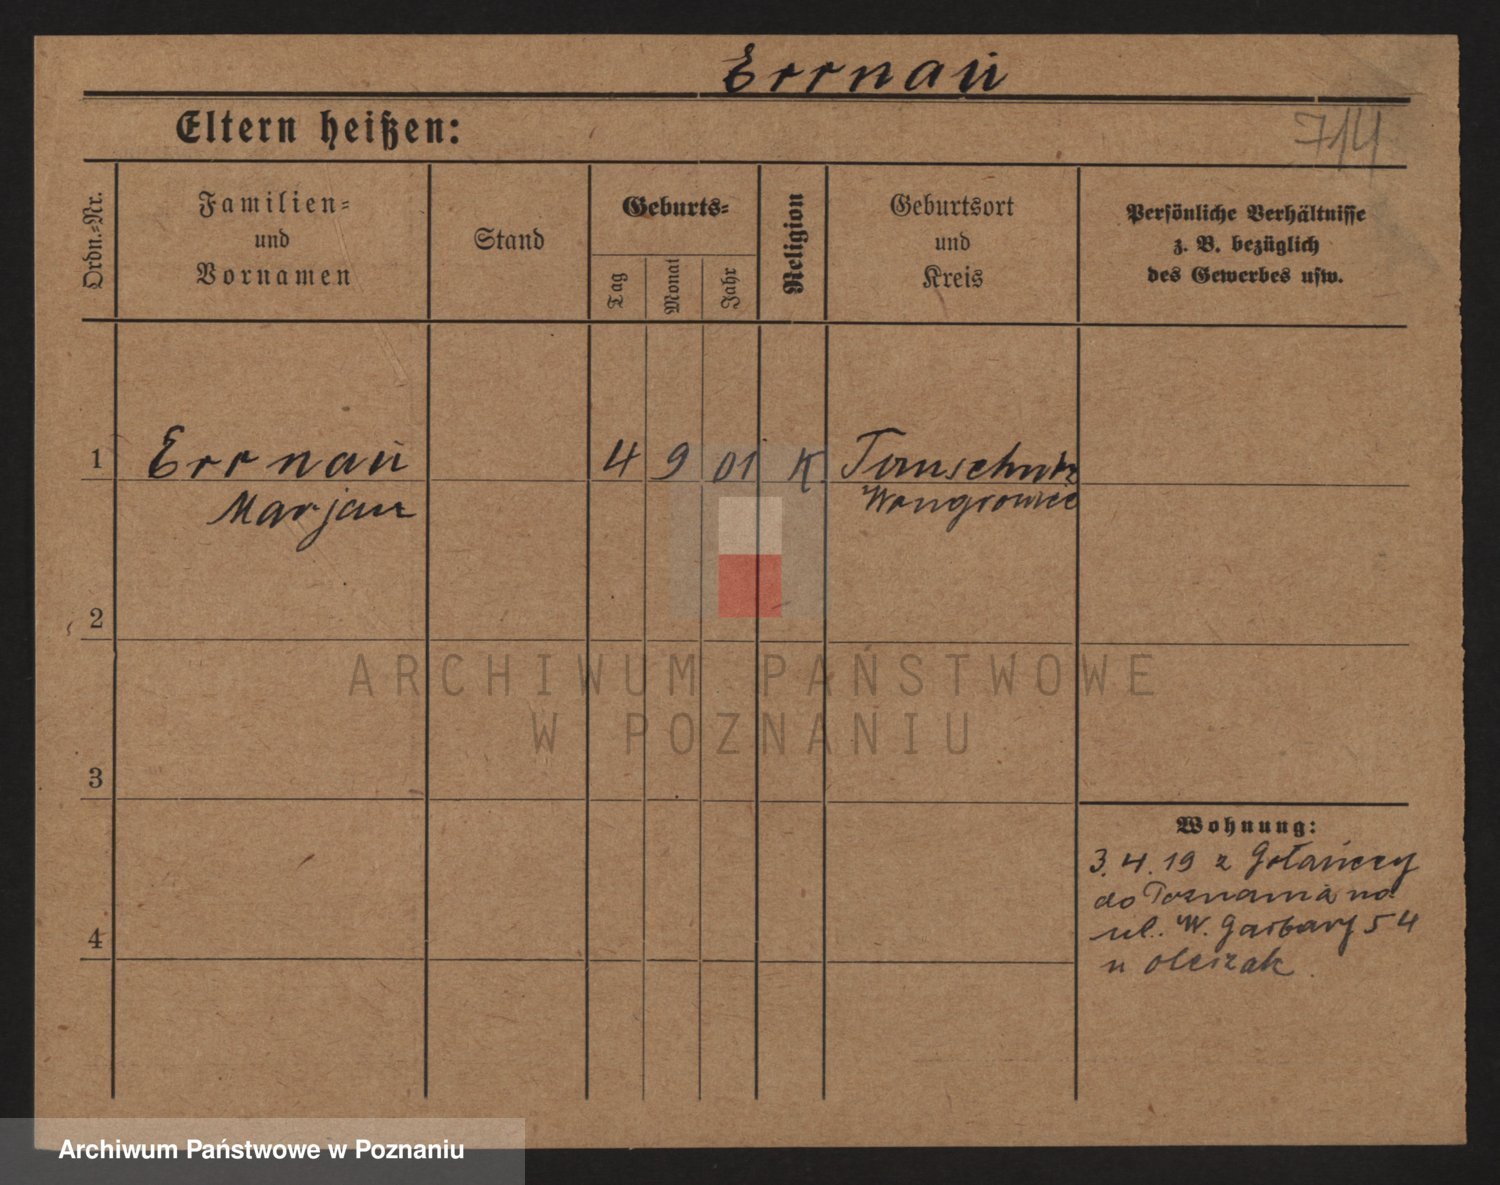 Errnau
714
Eltern heißen:
Ordn.-Nr.
Familien-
und
Vornamen
Stand
Geburts-
Tag
Monat
Jahr
Religion
Geburtsort
und
Kreis
Persönliche Verhältnisse
z. B. bezüglich
des Gewerbes usw.
1 Errnau 4 9 01 K.
Marjan Wongrowiec
2
3
4
Wohnung:
3.4.19 z Gołańczy
do Poznania na
ul. W. Garbary 54
u Olejzak.
ARCHIWUM PAŃSTWOWE
W POZNANIU
Archiwum Państwowe w Poznaniu